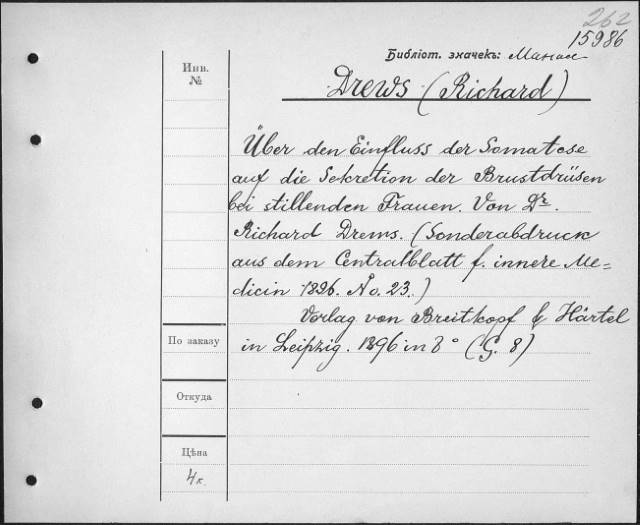 262
15986
Библіот. значекъ: Манасс
Инв.
№
Drews (Richard)
Über den Einfluss der Somatose
auf die Sekretion der Brustdrüsen
bei stillenden Frauen. Von Dr.
Richard Drews. (Sonderabdruck
aus dem Centralblatt f. innere Me=
dicin 1896. No. 23.)
Verlag von Breitkopf & Härtel
По заказу
in Leipzig. 1896 in 8° (S. 8)
Откуда
Цѣна
4 к.